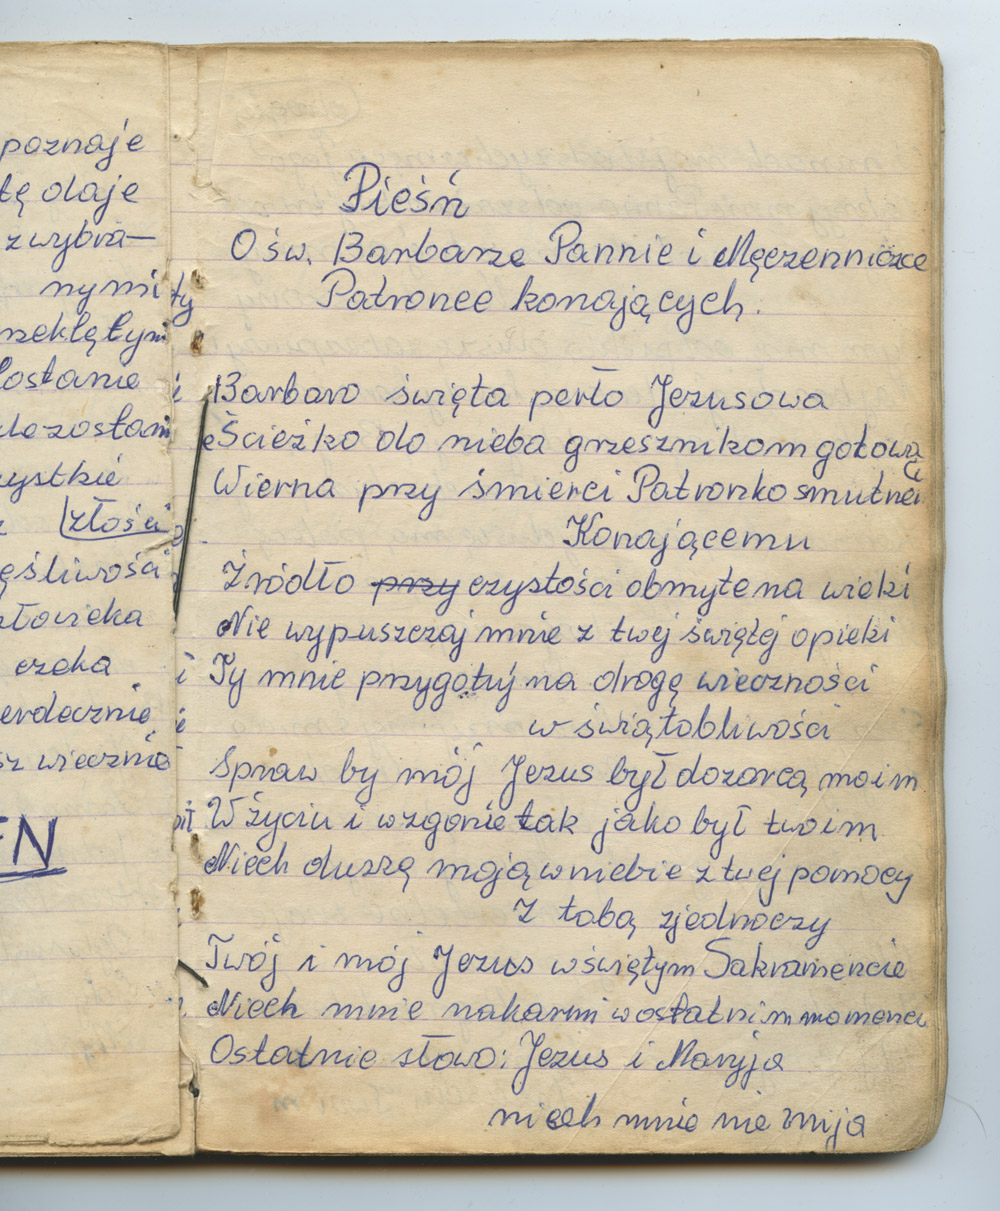 poznaje
tę daje
z wybra—
nymi
rzeklętym
dostanie
ystkie
złości
ęśliwości
złowieka
czeka
erdecznie
sz wiecznie
EN
Pieśń
O św. Barbarze Pannie i Męczenniczce
Patronce konających.
Barbaro święta perło Jezusowa
Ścieżko do nieba grzesznikom gotowa
Wierna przy śmierci Patronko smutnei
Konającemu
Źródło przy czystości obmyte na wieki
Nie wypuszczaj mnie z twej świętej opieki
Ty mnie przygotuj na drogę wieczności
w świątobliwości
Spraw by mój Jezus był dozorcą moim
W życiu i w zgonie tak jako był twoim
Niech duszę moją w niebie z twej pomocy
Z tobą zjednoczy
Twój i mój Jezus w świętym Sakramencie
Niech mnie nakarmi w ostatnim momenci
Ostatnie słowo: Jezus i Maryja
niech mnie nie mija